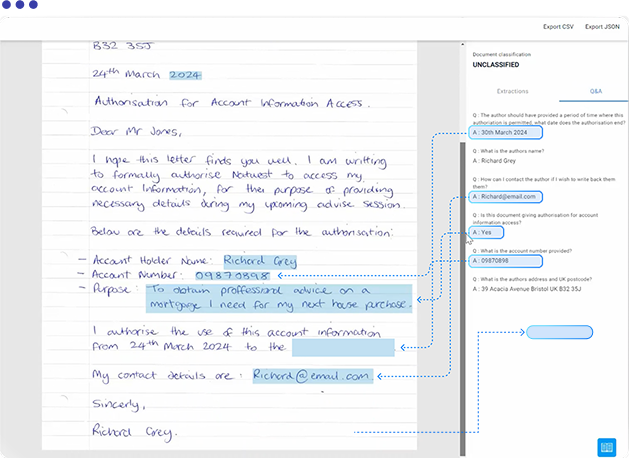 Export CSV Export JSON
B32 35J
24th March 2024
Authorisation for Account Information Access.
Dear Mr Jones,
I hope this letter finds you well. I am writting
to formally authorise Natwest to access my
account information, for the purpose of providing
necessary details during my upcoming advise session.
Below are the details required for the authorisation:
- Account Holder Name: Richard Grey
- Account Number: 09870898
- Purpose: To obtain proffessional advice on a
mortgage I need for my next house purchase.
I authorise the use of this account information
from 24th March 2024 to the
My contact details are: Richard@email.com.
Sincerly,
Richard Grey.
Document classification
UNCLASSIFIED
Extractions Q&A
Q : The author should have provided a period of time where this
authoriation is permitted, what date does the authorisation end?
A : 30th March 2024
Q : What is the authors name?
A : Richard Grey
Q : How can I contact the author if I wish to write back them
them?
A : Richard@email.com
Q : Is this document giving authorisation for account
information access?
A : Yes
Q : What is the account number provided?
A : 09870898
Q : What is the authors address and UK postcode?
A : 39 Acacia Avenue Bristol UK B32 35J